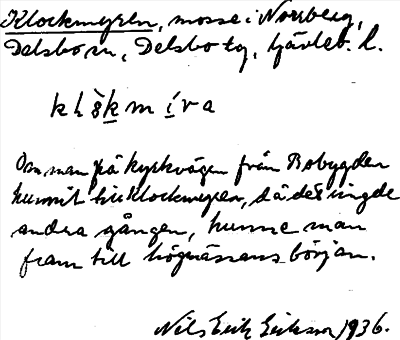 Klockmyren, mosse i Norrberg,
Delsbo sn, Delsbo tg, Gävleb. l.
klåkmíra
Om man på kyrkvägen från Bobygden
hunnit till Klockmyren, då det ringde
andra gången, hunne man
fram till högmässans början.
Nils Erik Eriksson 1936.